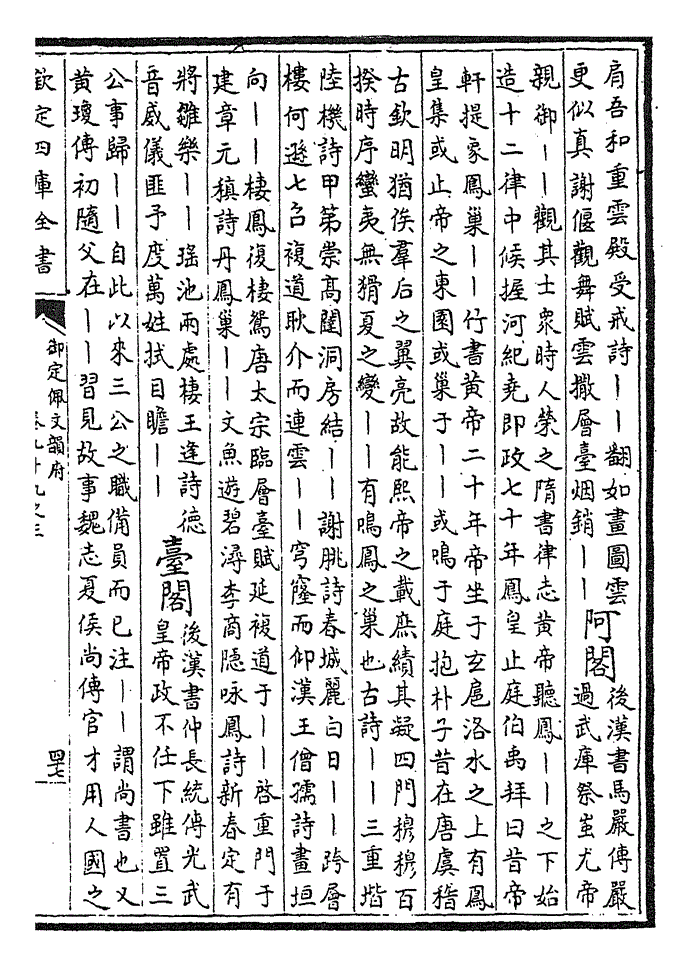 肩吾和重雲殿受戒詩丨丨翻如畫圖雲
更似真謝偃觀舞賦雲撒層臺烟銷丨丨
阿閣
後漢書馬嚴傳嚴
過武庫祭蚩尤帝
親御丨丨觀其士衆時人榮之隋書律志黄帝聽鳳丨丨之下始
造十二律中候握河紀堯即政七十年鳳皇止庭伯禹拜曰昔帝
軒提象鳳巢丨丨竹書黄帝二十年帝坐于玄扈洛水之上有鳳
皇集或止帝之東園或巢于丨丨或鳴于庭抱朴子昔在唐虞稽
古欽明猶俟羣后之翼亮故能熙帝之載庶績其凝四門穆穆百
揆時序蠻夷無猾夏之變丨丨有鳴鳳之巢也古詩丨丨三重堦
陸機詩甲第崇髙闥洞房結丨丨謝朓詩春城麗白日丨丨跨層
樓何遜七召複道耿介而連雲丨丨穹窿而仰漢王僧孺詩畫垣
向丨丨棲鳳復棲鴛唐太宗臨層臺賦延複道于丨丨啓重門于
建章元稹詩丹鳳巢丨丨文魚遊碧潯李商隠咏鳳詩新春定有
將雛樂丨丨瑶池兩處棲王逢詩德
音威儀匪予度萬姓拭目瞻丨丨
臺閣
後漢書仲長統傳光武
皇帝政不任下雖置三
公事歸丨丨自此以來三公之職備員而已注丨丨謂尚書也又
黄瓊傳初隨父在丨丨習見故事魏志夏侯尚傳官才用人國之
欽定四庫全書
御定佩文韻府
卷九十九之三
四七